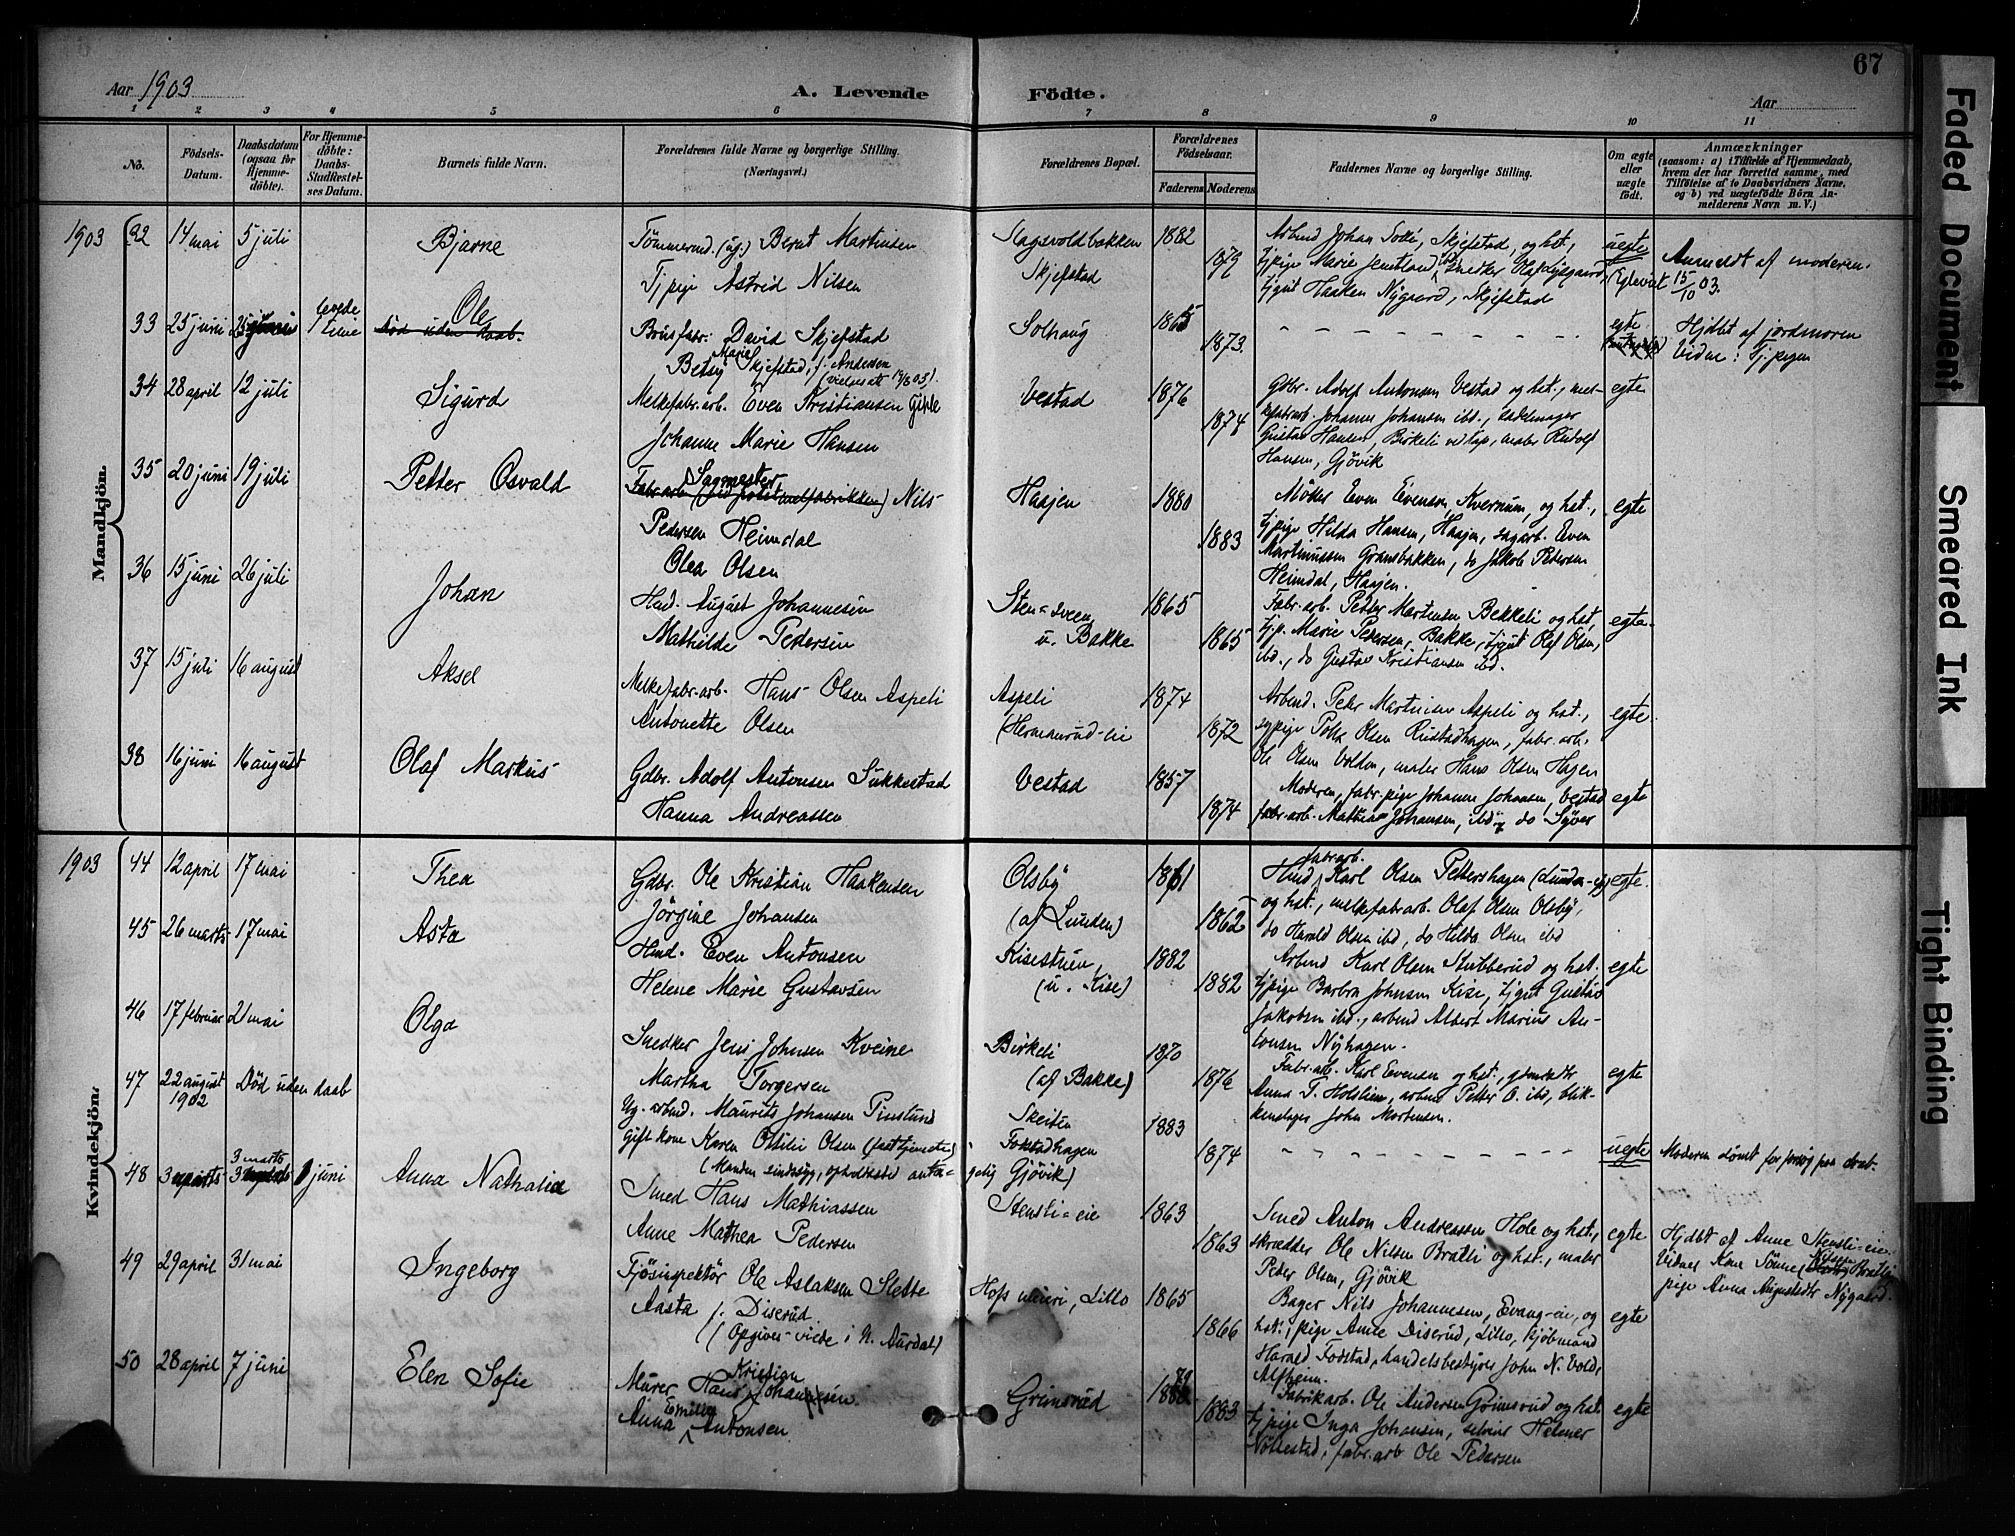 67
Aar 1903
A. Levende Födte.
Aar
1 2 3 4 5 6 7 8 9 10 11
No.
Födsels-Datum.
Daabsdatum (ogsaa for Hjemme-döbte).
For Hjemme-döbte: Daabs-Stadfæstel-ses Datum.
Barnets fulde Navn.
Forældrenes fulde Navne og borgerlige Stilling. (Næringsvei.)
Forældrenes Bopæl.
Forældrenes Födselsaar.
Faderens Moderens
Faddernes Navne og borgerlige Stilling.
Om ægte eller uægte födt.
Anmærkninger
(saasom: a) i Tilfælde af Hjemmedaab, hvem der har forrettet samme, med Tilföielse af to Daabsvidners Navne, og b) ved uægtefödte Börn Anmelderens Navn m. V.)
Mandkjön.
1903 32 14 mai 5 juli Bjarne
Tömmermd. (ug.) Bernt Martinsen
Tj.pige Astrid Nilsen
Slagsvoldbakken
Skjefstad
1882
1879
Arbmd Johan Skjefstad, og hst.,
tjpige Marie snedker Olaf Lysgaard
tjgut Haaken Nygaard, Skjefstad
uegte
Anmeldt af moderen
15/10 03.
33 25 juni 25 juni
Ole
död uden daab.
Brusfabr. David Skjefstad
Betsy Marie Skjefstad, f. Andersen
Solhaug
1865
1873.
egte
Hjdbt af jordmoren
Vidne: Tj.pigen
34 28 april 12 juli Sigurd
Melkefabr.arb. Even Kristiansen Gihle
Johanne Marie Hansen
Vestad
1876
1874
Gdbr. Adolf Antonsen Vestad og hst., mel-
kefabrarb. Johannes Johansen ibd., sadelmager
Gustav Hansen, Birkeli ved Lap, maler Rudolf
Hansen, Gjövik
egte
35 20 juni 19 juli Petter Osvald
Sagmester
Nils
Pedersen Heimdal
Olea Olsen
Haajen
1880
1883
Möller Even Evensen, Kvernum, og hst.,
tjpige Hilda Hansen, Haajen, sagarb. Even
Martinussen Gransbakken, do Jakob Petersen
Heimdal, Haajen.
egte
36 15 juni 26 juli Johan
Hmd. August Johannesen
Mathilde Pedersen
Sten=sveen
u. Bakke
1865
1865
Fabr.arb. Petter Martinsen Bekkeli og hst,
tj.p. Marie Pedersen, Bakke, tjgut Olaf Olsen,
ibd., do Gustav Kristiansen ibd.
egte
37 15 juli 16 august Aksel
Melkefabr.arb. Hans Olsen Aspeli
Antonette Olsen
Aspeli
(Hermanrud-eie
1874
1872
Arbmd. Peter Martinsen Aspeli og hst.,
sypige Olsen Rustadhagen, fabr. arb.
Ole Olsen Volden, maler Hans Olsen Hagen
egte
38 16 juni 16 august Olaf Markus
Gdbr. Adolf Antonsen Sukkestad
Hanna Andreassen
Vestad
1857
1874
Moderen, fabr.pige Johanne Johansen, Vestad
fabr.arb. Mathias Johansen, ibd og do Syver
egte
Kvindekjön.
1903 44 12 april 17 mai Thea
Gdbr. Ole Kristian Haakensen
Jörgine Johansen
Olsby
(af Lunden)
1861
1862
Hmd fabrarb. Karl Olsen Pettershagen (Lunden-eie)
og hst., melkefabrarb. Olaf Olsen Olsby,
do Harald Olsen ibd, do Hilda Olsen ibd
egte.
45 26 marts 17 mai Asta
Hmd. Even Antonsen
Helene Marie Gustavsen
Kisestuen
(u. Kise)
1882
1882
Arbmd Karl Olsen Stubberud og hst.
tjpige Barbra Johnsen Kise, tjgut Gustav
Jakobsen ibd., arbmd Albert Marius An-
tonsen Nyhagen.
egte
46 17 februar 21 mai Olga
Snedker Jens Johnsen Kveine
Martha Torgersen
Birkeli
(af Bakke)
1870
1876
Fabr.arb. Karl Evensen og hst.,
Anna T. Holslien, arbmd Petter O. ibd, blik-
kenslager John Mortensen.
egte
47 22 august 1902 Död uden daab
Ug. arbmd. Maurits Johansen Pinslund
gift kone Karen Ottilie Olsen (fast tjeneste)
(Manden sindssyg, opholdssted anta-
gelig Gjövik)
Skeiten
Fokstadhagen
1883
1874
uegte
Moderen dömt for forsög paa drab.
48 3 marts 3 marts 1 juni Anna Nathalia
Smed Hans Mathiassen
Anne Mathea Pedersen
Stensli=eie
1863
1863
Smed Anton Andreassen Hole og hst.,
skrædder Ole Nilsen Bratli og hst., maler
Peder Olsen, Gjövik
egte
Hjdbt af Anne Stensli-eie
Vidner Kone Sönne Nilsen Bratli
pige Anna Augustsdtr Nygaard.
49 29 april 31 mai Ingeborg
Fjösinspektör Ole Aslaksen Slette
Aasta f. Diserud
(Opgives viede i N. Aurdal)
Hofs meieri, Lillo
1865
1866
Bager Nils Johannesen, Evang-eie, og
hst., pige Anne Diserud, Lillo, kjöbmand
Harald Fodstad, handelsbestyrer John N. Volds
Alfheim.
egte
50 28 april 7 juni Elen Sofie
Murer Hans Kristian Johansen.
Anna Emilie Antonsen.
Grimsrud
1879
1883
Fabrikarb. Ole Andersen Grimsrud og hst.
tjpige Inga Johansen, Helmer
Nöttestad, fabr.arb Ole Pedersen
egte
Faded Document
Smeared Ink
Tight Binding